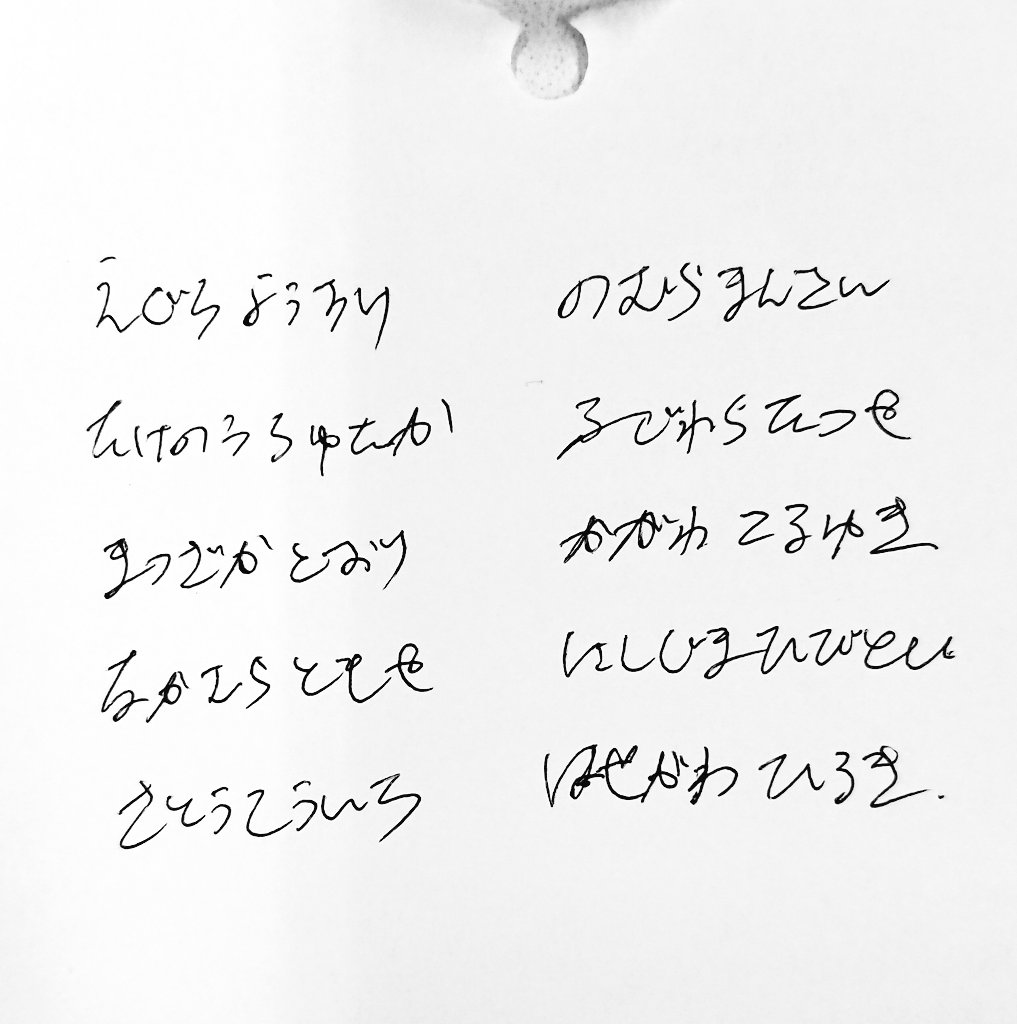 たけのうち ゆたか
まつざか とおり
なかむら ともや
さとう こういち
のむら まんさい
ふじわら たつや
かがわ てるゆき
にしじま ひでとし
はせがわ ひろき.